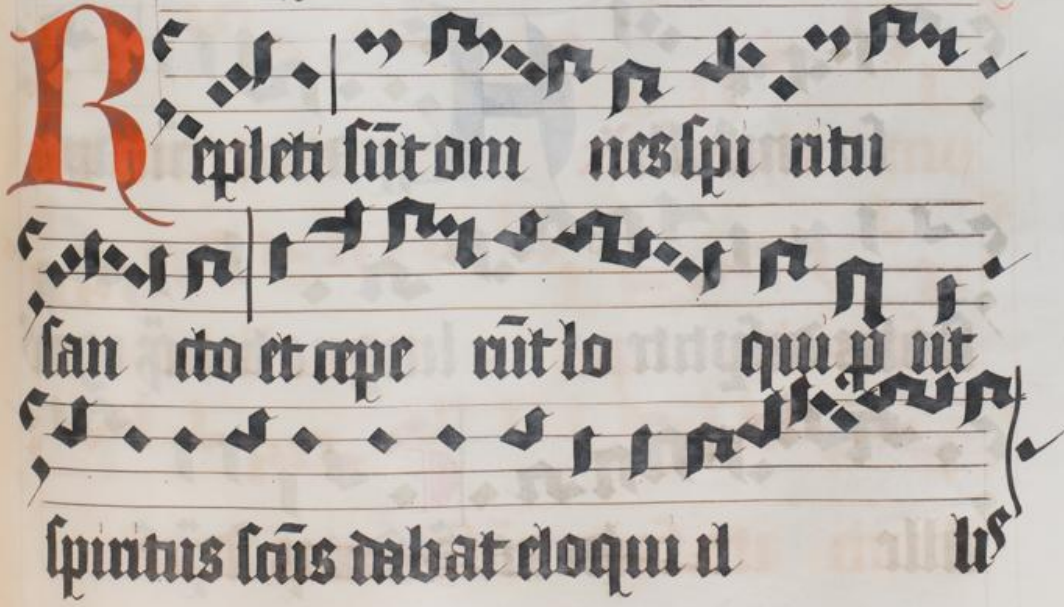 Repleti sūt om nes spi ritu
san cto et cepe rūt lo qui ꝓ ut
spiritus scūs dabat eloqui il lis